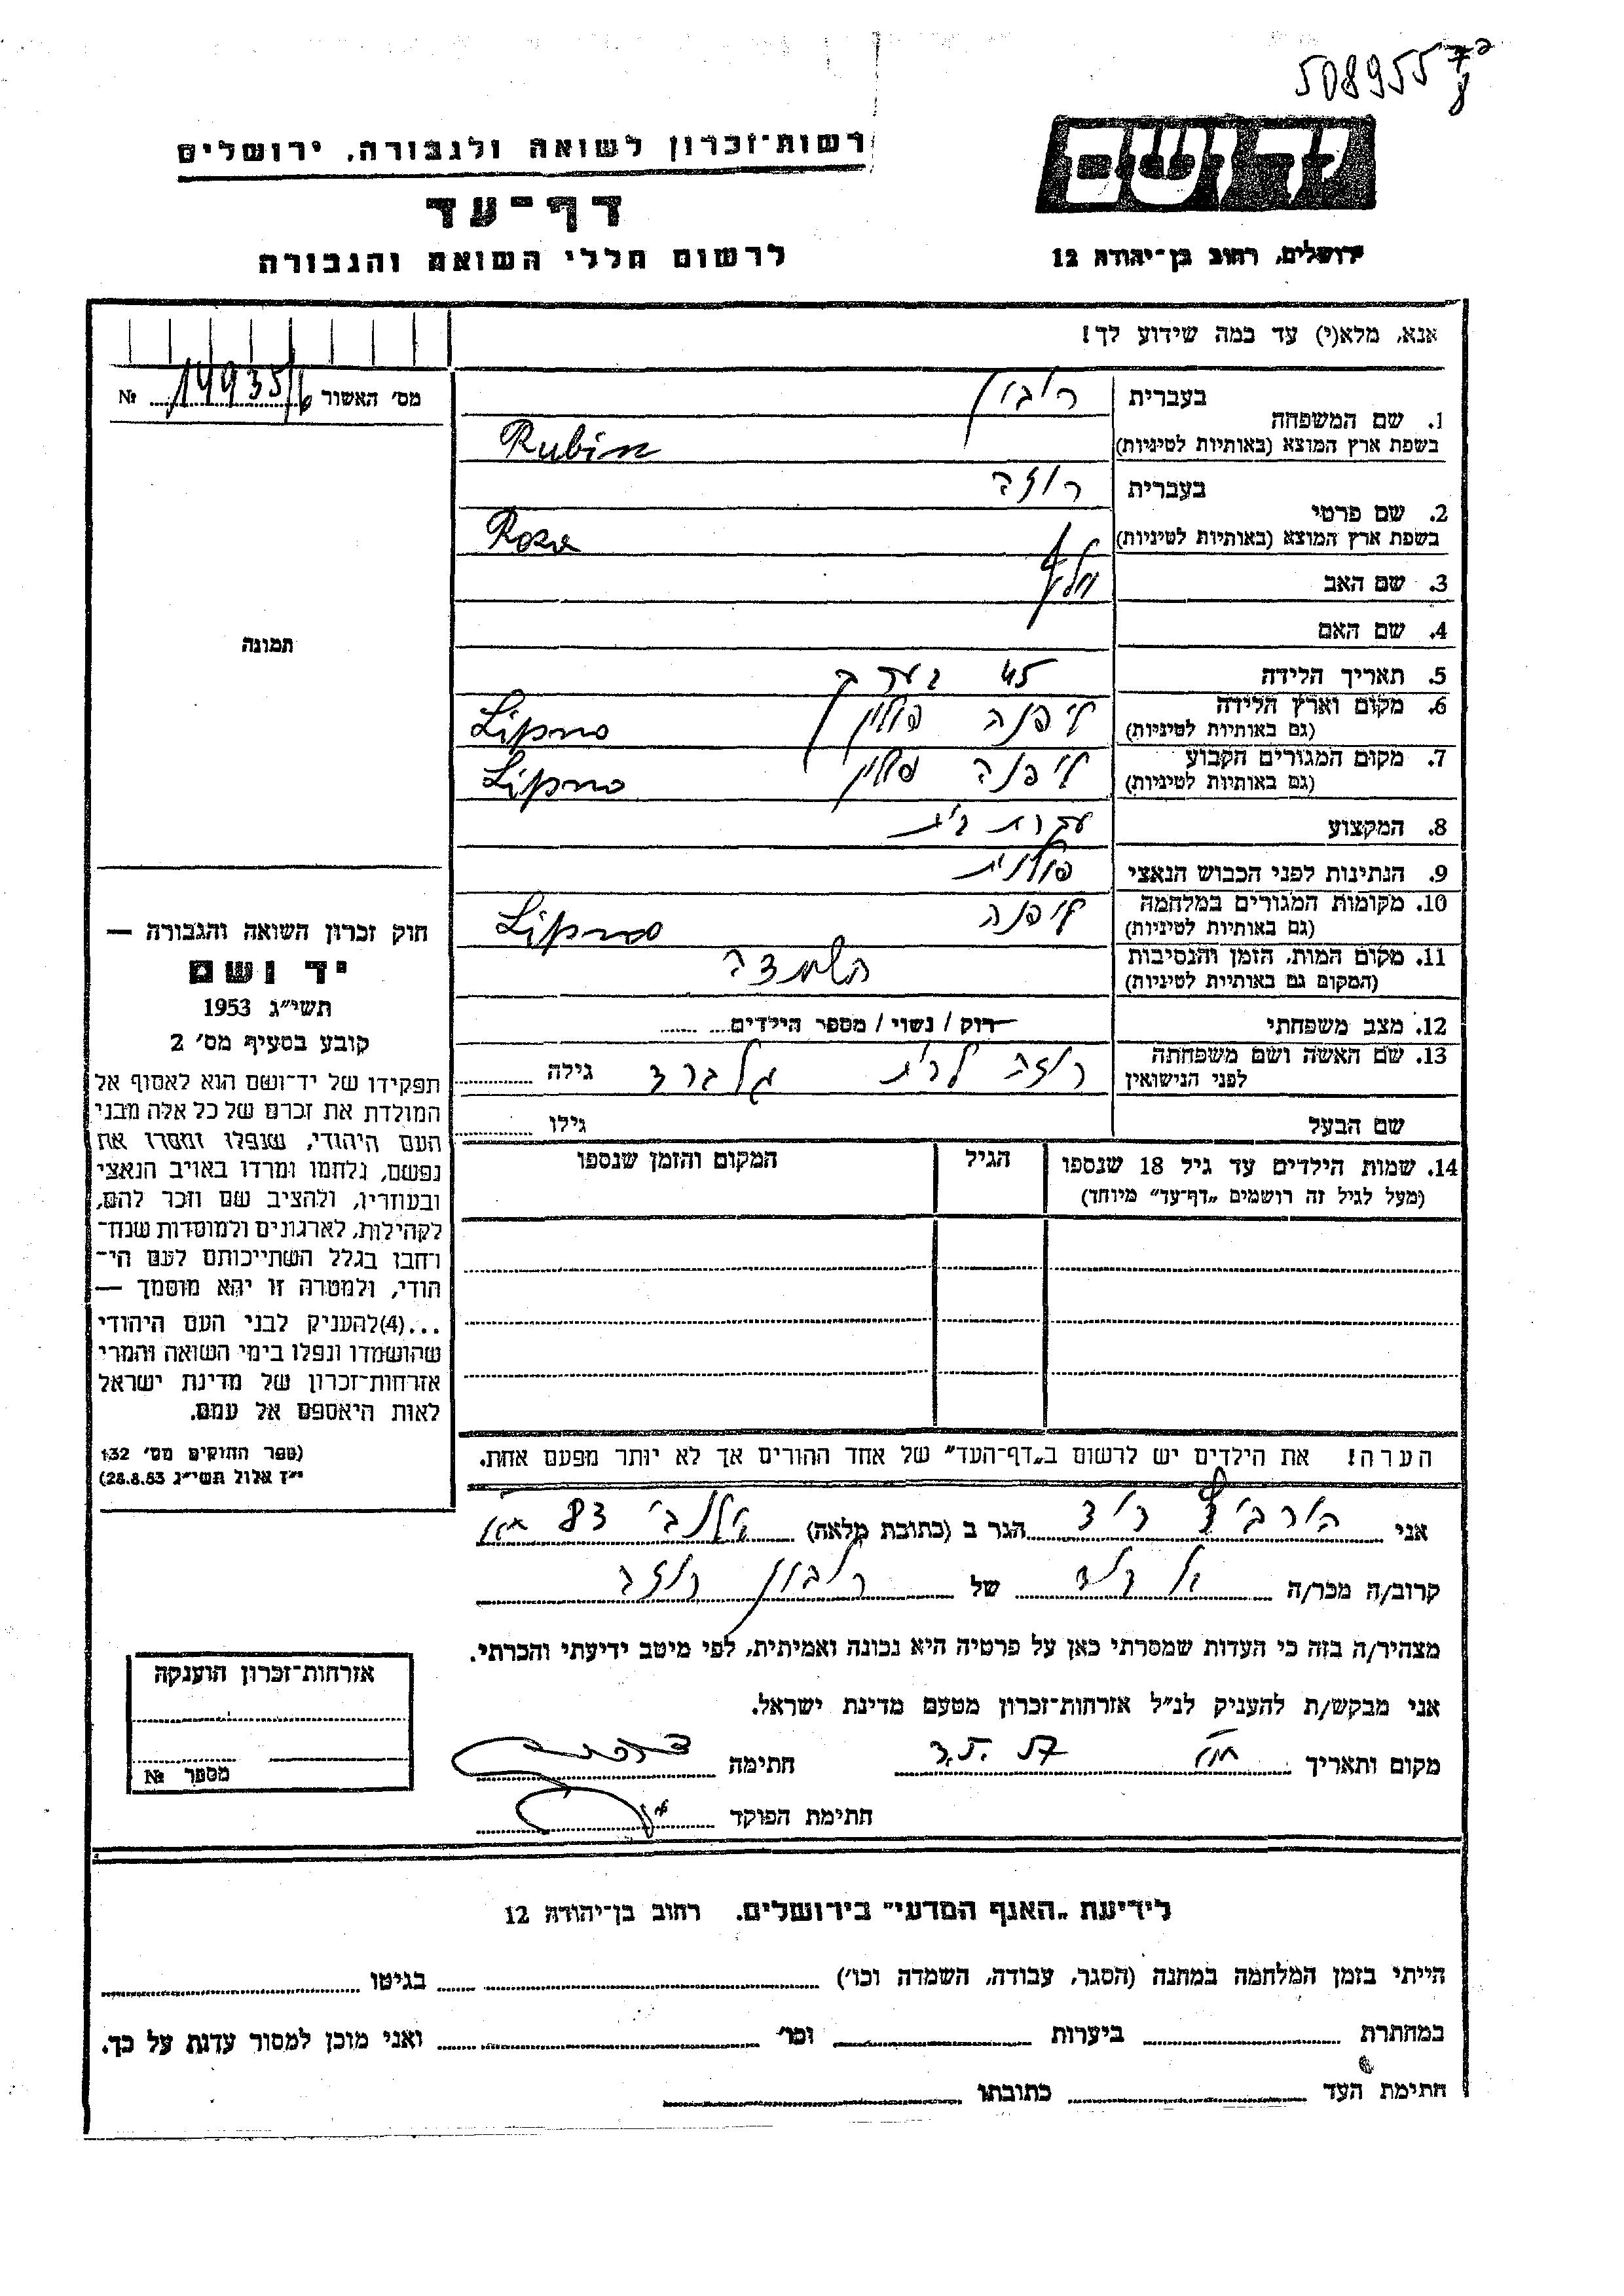 508955
רשות־זכרון לשואה ולגבורה, ירושלים
יד ושם
דף־עד
לרשום חללי השואה והגבורה
ירושלים, רחוב בן־יהודה 12
אנא, מלא(י) עד כמה שידוע לך!
מס׳ האשור № 14935/6
1. שם המשפחה
בעברית רובין
בשפת ארץ המוצא (באותיות לטיניות) Rubin
2. שם פרטי
בעברית רוזה
בשפת ארץ המוצא (באותיות לטיניות) Roza
3. שם האב
4. שם האם
תמונה
5. תאריך הלידה 45 בערך
6. מקום וארץ הלידה ליפנה פולין Lipno
(גם באותיות לטיניות)
7. מקום המגורים הקבוע ליפנה פולין Lipno
(גם באותיות לטיניות)
8. המקצוע עקרת בית
9. הנתינות לפני הכבוש הנאצי פולנית
10. מקומות המגורים במלחמה ליפנה Lipno
(גם באותיות לטיניות)
11. מקום המות, הזמן והנסיבות השמדה
(המקום גם באותיות לטיניות)
12. מצב משפחתי רוק / נשוי / מספר הילדים
13. שם האשה ושם משפחתה רוזה לבית גלברד גילה
לפני הנישואין
שם הבעל גילו
14. שמות הילדים עד גיל 18 שנספו הגיל המקום והזמן שנספו
(מעל לגיל זה רושמים „דף־עד״ מיוחד)
הערה! את הילדים יש לרשום ב„דף־העד״ של אחד ההורים אך לא יותר מפעם אחת.
חוק זכרון השואה והגבורה —
יד ושם
תשי״ג 1953
קובע בסעיף מס׳ 2
תפקידו של יד־ושם הוא לאסוף אל
המולדת את זכרם של כל אלה מבני
העם היהודי, שנפלו ומסרו את
נפשם, נלחמו ומרדו באויב הנאצי
ובעוזריו, ולהציב שם וזכר להם,
לקהילות, לארגונים ולמוסדות שנח־
רבו בגלל השתייכותם לעם הי־
הודי, ולמטרה זו יהא מוסמך —
...(4)להעניק לבני העם היהודי
שהושמדו ונפלו בימי השואה והמרי
אזרחות־זכרון של מדינת ישראל
לאות היאספם אל עמם.
(ספר החוקים מס׳ 132
י״ז אלול תשי״ג 28.8.53)
אני הורביץ דוד הגר ב (כתובת מלאה) אלנבי 83
קרוב/ה מכר/ה של רובין רוזה
מצהיר/ה בזה כי העדות שמסרתי כאן על פרטיה היא נכונה ואמיתית, לפי מיטב ידיעתי והכרתי.
אני מבקש/ת להעניק לנ״ל אזרחות־זכרון מטעם מדינת ישראל.
מקום ותאריך חתימה
חתימת הפוקד
אזרחות־זכרון הוענקה
מספר №
לידיעת „האגף המדעי״ בירושלים. רחוב בן־יהודה 12
הייתי בזמן המלחמה במחנה (הסגר, עבודה, השמדה וכו׳) בגיטו
במחתרת ביערות וכו׳ ואני מוכן למסור עדות על כך.
חתימת העד כתובתו